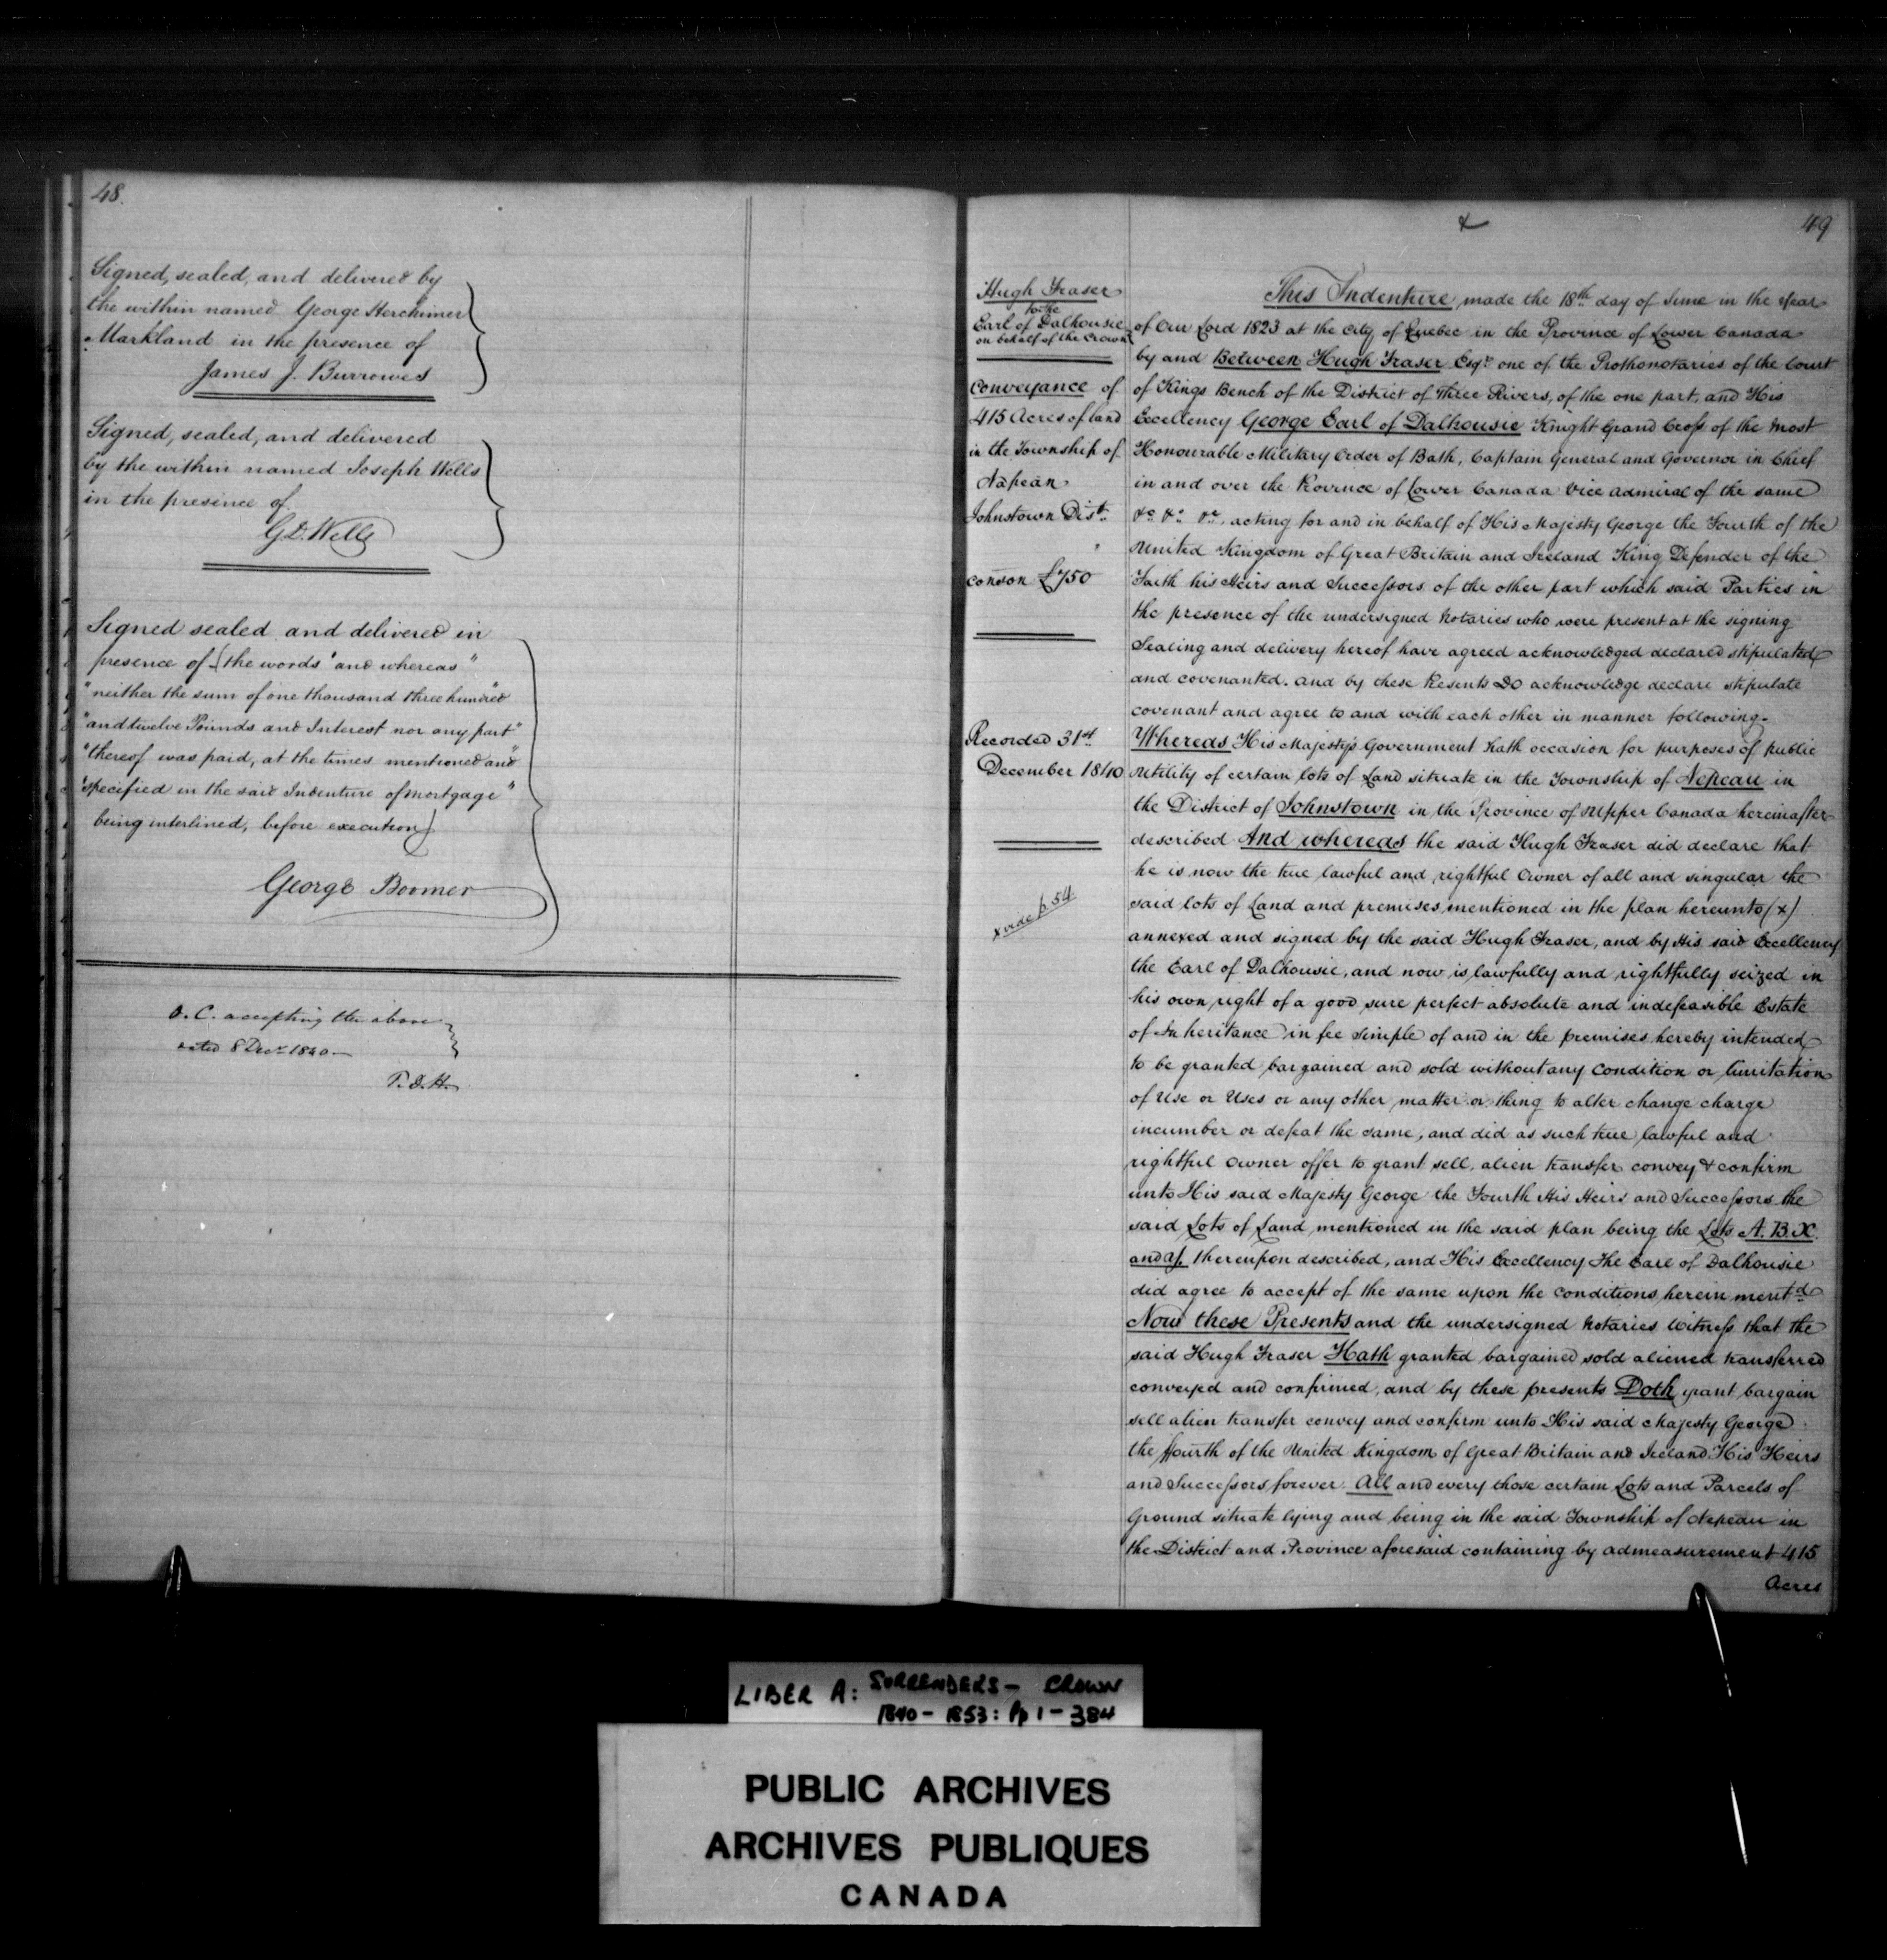 48.
Signed, sealed, and delivered by
the within named George Herchimer
Markland in the presence of
James J. Burrowes
Signed, sealed, and delivered
by the within named Joseph Wells
in the presence of
G D. Wells
Signed sealed and delivered in
presence of (the words "and whereas"
"neither the sum of one thousand three hundred"
"and twelve Pounds and Interest nor any part"
"thereof was paid, at the times mentioned and"
"specified in the said Indenture of Mortgage"
being interlined, before execution)
George Boomer
O. C. accepting the above
dated 8 Decr 1840
49
Hugh Fraser
to the
Earl of Dalhousie
on behalf of the Crown
Conveyance of
415 Acres of land
in the Township of
Napean
Johnstown Dist.
Conson £750
Recorded 31st
December 1840
x vide p. 54
This Indenture made the 18th day of June in the Year
of Our Lord 1823 at the City of Quebec in the Province of Lower Canada
by and Between Hugh Fraser Esqr. one of the Prothonotaries of the Court
of Kings Bench of the District of Three Rivers, of the one part, and His
Excellency George Earl of Dalhousie Knight Grand Cross of the most
Honourable Military Order of Bath, Captain General and Governor in Chief
in and over the Province of Lower Canada Vice Admiral of the same
&c &c &c, acting for and in behalf of His Majesty George the Fourth of the
United Kingdom of Great Britain and Ireland King Defender of the
Faith his Heirs and Successors of the other part which said Parties in
the presence of the undersigned Notaries who were present at the signing
Sealing and delivery hereof have agreed acknowledged declared stipulated
and covenanted. and by these Presents Do acknowledge declare stipulate
covenant and agree to and with each other in manner following.
Whereas His Majesty's Government hath occasion for purposes of public
Utility of certain lots of Land situate in the Township of Nepean in
the District of Johnstown in the Province of Upper Canada hereinafter
described And whereas the said Hugh Fraser did declare that
he is now the true lawful and rightful Owner of all and singular the
said lots of Land and premises mentioned in the plan hereunto (x)
annexed and signed by the said Hugh Fraser, and by His said Excellency
the Earl of Dalhousie, and now is lawfully and rightfully seized in
his own right of a good sure perfect absolute and indefeasible Estate
of Inheritance in fee Simple of and in the premises hereby intended
to be granted bargained and sold without any Condition or limitation
of Use or Uses or any other matter or thing to alter change charge
incumber or defeat the same, and did as such true lawful and
rightful Owner offer to grant sell, alien transfer convey & confirm
unto His said Majesty George the Fourth His Heirs and Successors the
said Lots of Land mentioned in the said plan being the Lots A. B. X.
and Y. thereupon described, and His Excellency The Earl of Dalhousie
did agree to accept of the same upon the conditions herein mentd
Now these Presents and the undersigned Notaries Witness that the
said Hugh Fraser Hath granted bargained sold aliened transferred
conveyed and confirmed, and by these presents Doth grant bargain
sell alien transfer convey and confirm unto His said Majesty George
the ffourth of the United Kingdom of Great Britain and Ireland His Heirs
and Successors forever. All and every those certain Lots and Parcels of
Ground situate lying and being in the said Township of Nepean in
the District and Province aforesaid containing by admeasurement 415
Acres
LIBER A: SURRENDERS - CROWN
1840 - 1853: Pp 1 - 384
PUBLIC ARCHIVES
ARCHIVES PUBLIQUES
CANADA